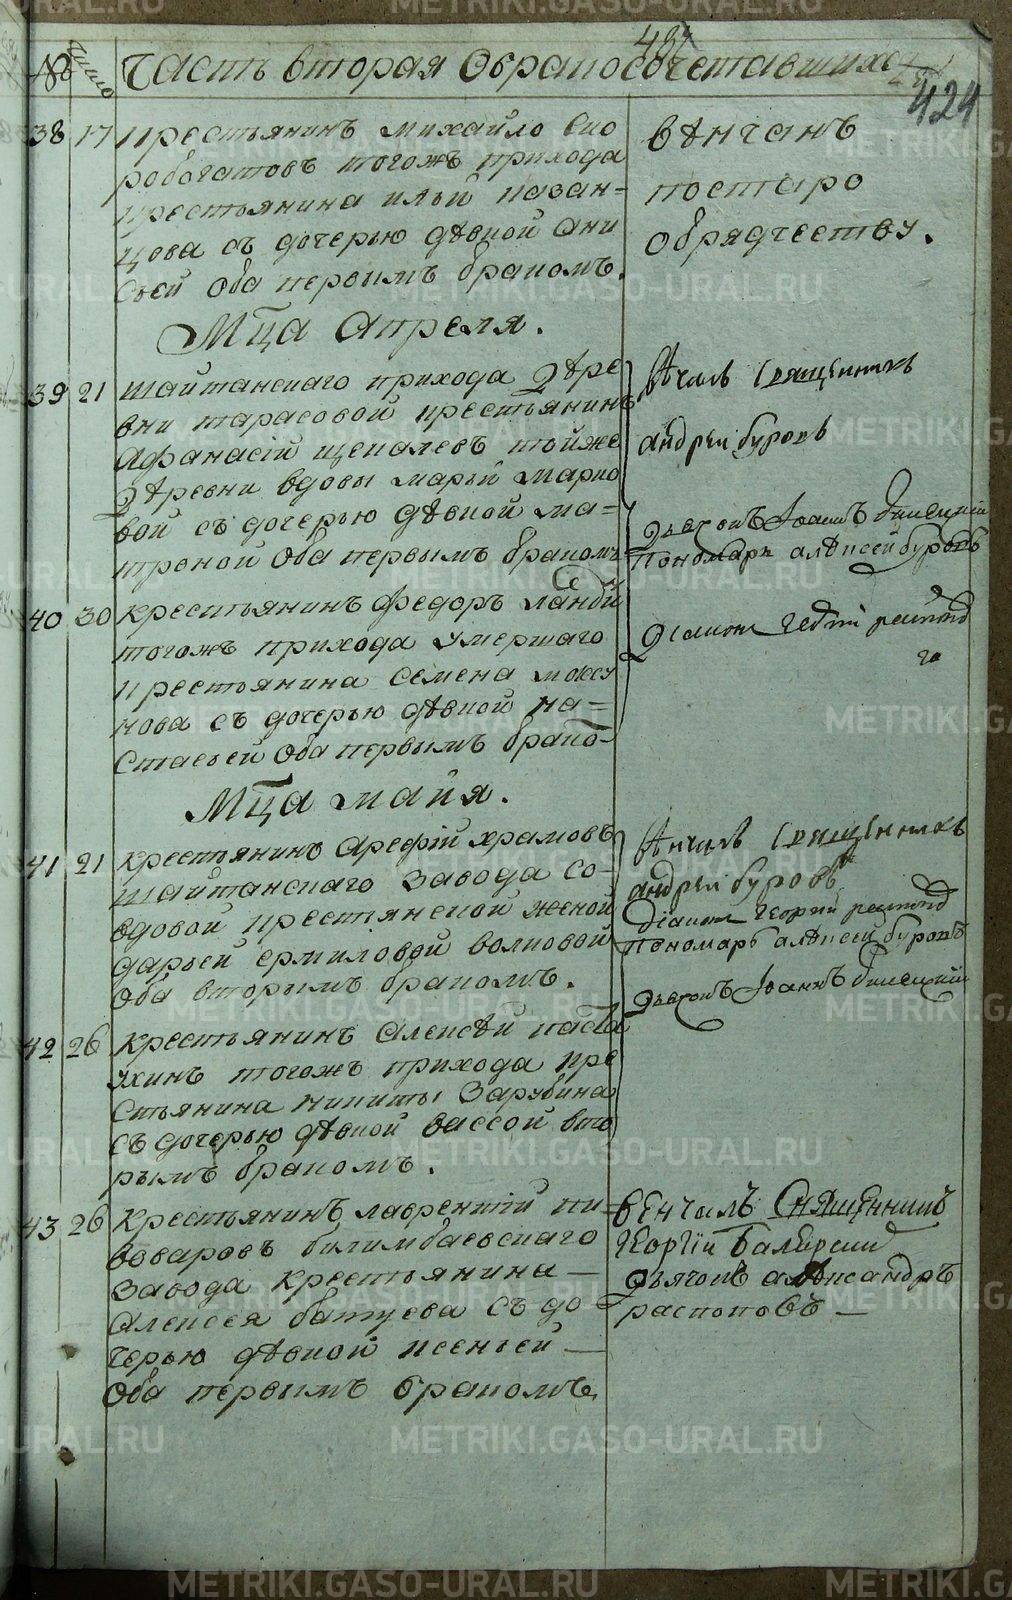 № Число Часть вторая О бракосочетавшихся
437
424
38 17 Крестьянинъ михайло ско
робогатовъ тогожъ прихода
крестьянина ильи казан=
цова съ дочерью дѣвкой ани
сьей оба первымъ бракомъ.
вѣнчанъ
по старо
обрядчеству.
Мца Апреля.
39 21 шайтанскаго прихода Дѣре
вни тарасовой крестьянинъ
Афанасій щепалевъ тойже
Дѣревни вдовы марьи марко
вой съ дочерью дѣвкой ма=
треной Оба первымъ бракомъ
Вѣнчалъ Священникъ
андрей буровъ
Дьячокъ Иоаннъ
Пономарь алѣксей буровъ
40 30 крестьянинъ федоръ
тогожъ прихода умершаго
крестьянина семена моксу
нова съ дочерью дѣвкой на=
стасьей Оба первымъ брако-
Діаконъ
Мца майя.
41 21 крестьянинъ Арефій храмовъ
шайтанскаго завода со-
вдовой крестянской женой
дарьей ермиловой волковой
оба вторымъ бракомъ.
Вѣнчалъ Священникъ
андрей буровъ
Діаконъ Георгий
Пономарь алѣксей буровъ
Дьячокъ Иоаннъ
42 26 крестьянинъ Алексѣй пасту
ухинъ тогожъ прихода кре
стьянина никиты Зарубина
съ дочерью дѣвкой вассой вто
рымъ бракомъ.
43 26 крестьянинъ лаврентій пи=
воваровъ билимбаевскаго
завода крестьянина
Алексея батуева съ до
черью дѣвкой ксеньей
Оба первымъ бракомъ
вѢнчалъ Священникъ
Георгій
Дьячокъ алѣксандръ
распоповъ
METRIKI.GASO-URAL.RU